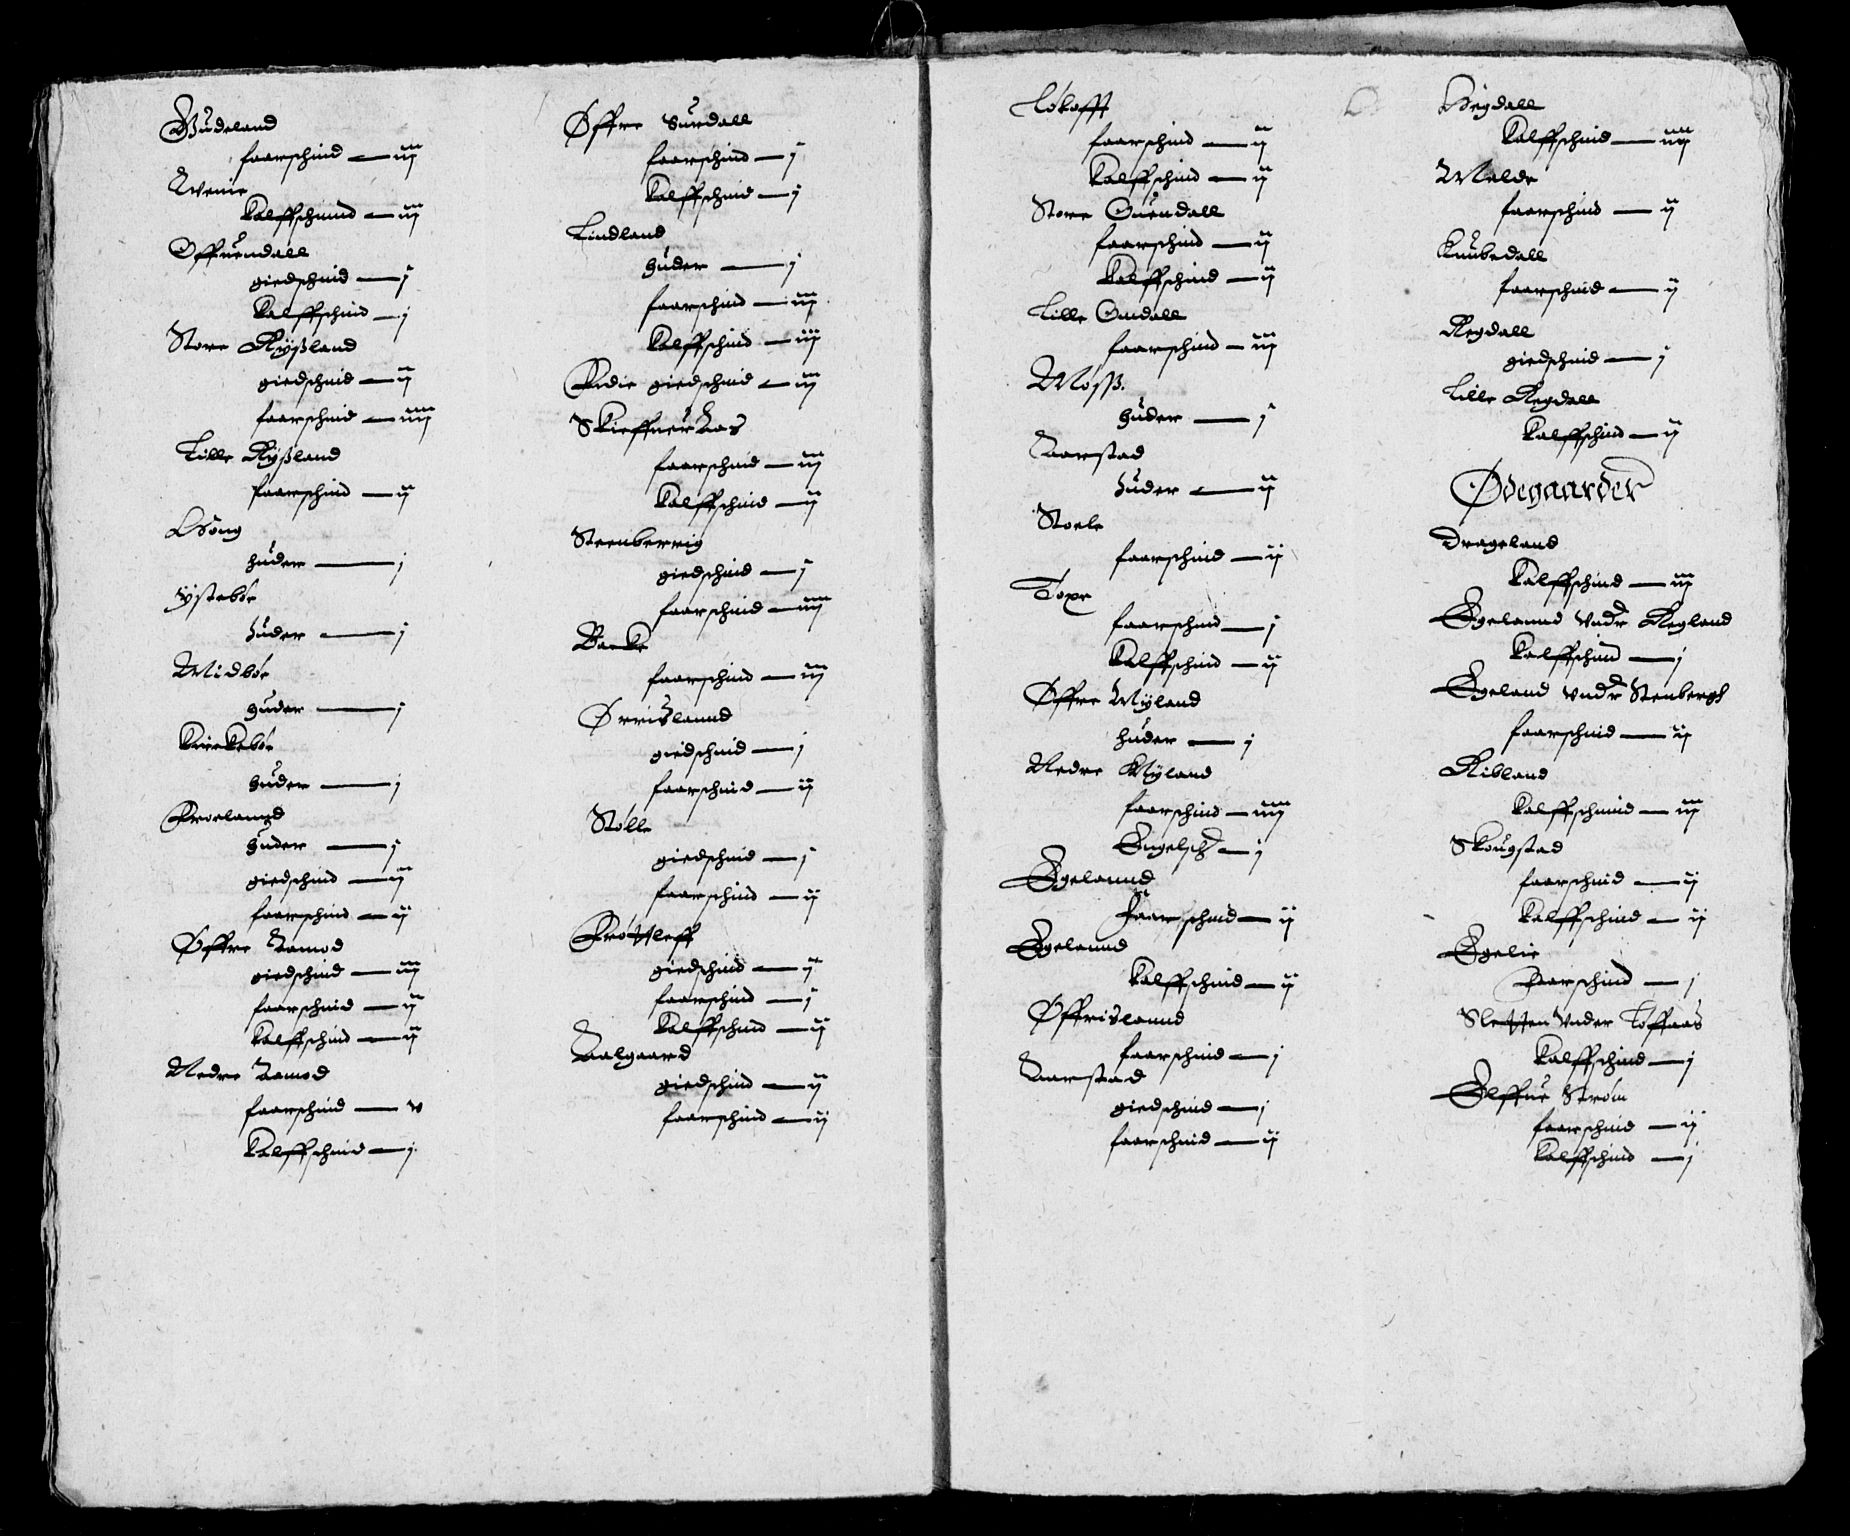 Gudeland
faarschind — iij
Wenie
Kalffschinnd — iij
Offuendall
giedschind — j
Kalffschind — j
Store Rÿsland
giedschind — ij
faarschind — iiij
Lille Rÿsland
faarschind — ij
huder — j
ÿstebøe
huder — j
Midbøe
huder — j
Kirkebøe
huder — j
huder — j
giedschind — ij
faarschind — ij
Øffre Aamod
giedschind — iij
faarschind — ij
Kalffschind — ij
Nedre Aamod
faarschind — v
Kalffschind — j
Øffre Surdall
faarschind — j
Kalffschind — j
Lindland
huder — j
faarschind — iij
Kalffschind — iij
giedschind — iij
Skieffuer Aas
faarschind — iij
Kalffschind — ij
Steenberrig
giedschind — j
faarschind — iiij
Backe
faarschind — iij
Ørrislannd
giedschind — j
faarschind — ij
Stølle
giedschind — j
faarschind — ij
giedschind — ij
faarschind — j
Kalffschind — ij
Aalgaard
giedschind — ij
faarschind — ij
Løkafft
faarschind — ij
Kalffschind — ij
Store Ouendall
faarschind — ij
Kalffschind — ij
Lille Omdall
faarschind — iij
Moss
huder — j
Aarstad
huder — ij
Stoele
faarschind — ij
Toxe
faarschind — j
Kalffschind — ij
Øffre Mÿland
huder — j
Nedre Mÿland
faarschind — iiij
Engelsch — j
Egelannd
Faarschind — ij
Egelannd
Kalffschind — ij
Øffrislannd
faarschind — j
Aarstad
giedschind — j
faarschind — ij
Høgdall
Kalffschind — iiij
Molde
faarschind — ij
Knubedall
faarschind — ij
Regdall
giedschind — j
Lille Regdall
Kalffschind — ij
Ødegaarder
Drageland
Kalffschind — iij
Egelannd vnder Regland
Kalffschind — j
Egeland vnder Stenbergh
faarschind — ij
Ribland
Kalffschinnd — iij
Skougstad
faarschind — ij
Kalffschind — ij
Egelie
Faarschind — j
Sletten Vnder Toffaas
Kalffschind — j
Elffue Strøm
faarschind — ij
Kalffschind — j